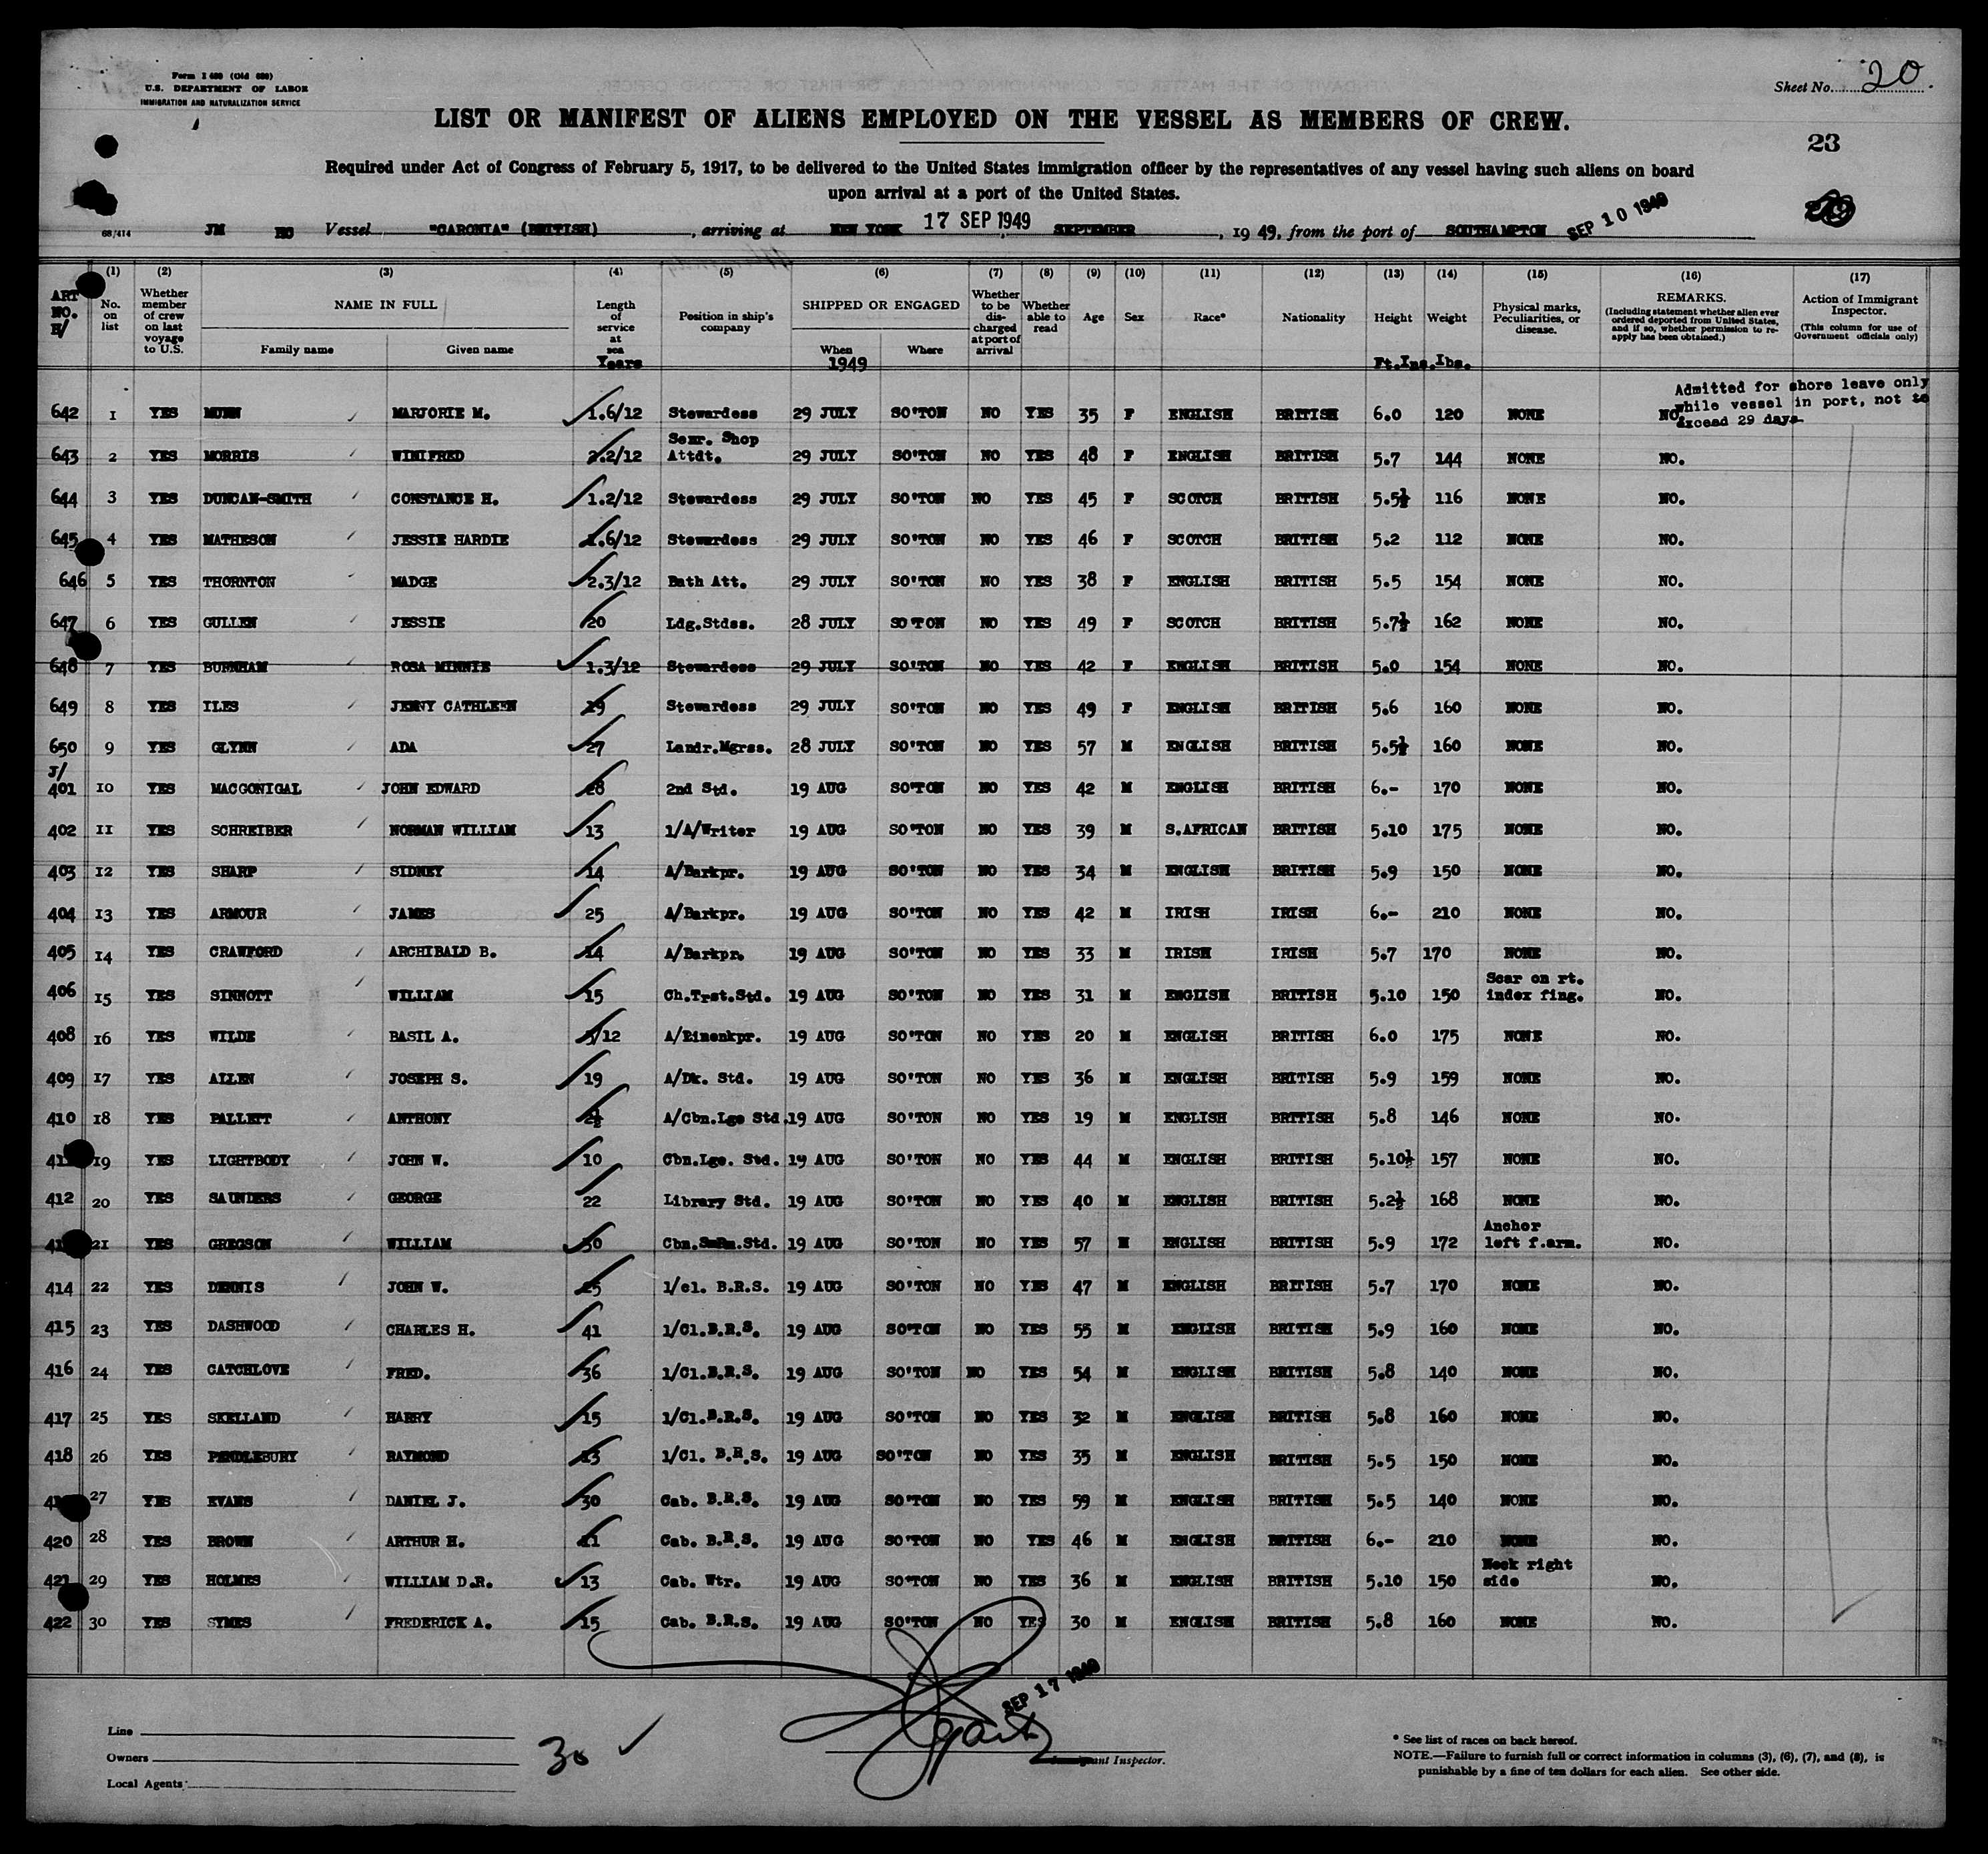 Form I 480 (Old 680)
U.S. DEPARTMENT OF LABOR
IMMIGRATION AND NATURALIZATION SERVICE
Sheet No. 20
LIST OR MANIFEST OF ALIENS EMPLOYED ON THE VESSEL AS MEMBERS OF CREW.
23
Required under Act of Congress of February 5, 1917, to be delivered to the United States immigration officer by the representatives of any vessel having such aliens on board
upon arrival at a port of the United States.
68/414 JM HO Vessel "CARONIA" (BRITISH), arriving at NEW YORK 17 SEP 1949 SEPTEMBER, 1949, from the port of SOUTHAMPTON SEP 10 1949
(1) (2) (3) (4) (5) (6) (7) (8) (9) (10) (11) (12) (13) (14) (15) (16) (17)
ART NO. H/ No. on list Whether member of crew on last voyage to U.S. NAME IN FULL Family name Given name Length of service at sea Years Position in ship's company SHIPPED OR ENGAGED When 1949 Where Whether to be discharged at port of arrival Whether able to read Age Sex Race* Nationality Height Ft.Ins. Weight Lbs. Physical marks, Peculiarities, or disease. REMARKS. (Including statement whether alien ever ordered deported from United States, and if so, whether permission to re-apply has been obtained.) Action of Immigrant Inspector. (This column for use of Government officials only)
Admitted for shore leave only
while vessel in port, not to
exceed 29 days
642 1 YES MUNN MARJORIE M. 1.6/12 Stewardess 29 JULY SO'TON NO YES 35 F ENGLISH BRITISH 6.0 120 NONE NO.
643 2 YES MORRIS WINIFRED 2.2/12 Senr. Shop Attdt. 29 JULY SO'TON NO YES 48 F ENGLISH BRITISH 5.7 144 NONE NO.
644 3 YES DUNCAN-SMITH CONSTANCE H. 1.2/12 Stewardess 29 JULY SO'TON NO YES 45 F SCOTCH BRITISH 5.5½ 116 NONE NO.
645 4 YES MATHESON JESSIE HARDIE 1.6/12 Stewardess 29 JULY SO'TON NO YES 46 F SCOTCH BRITISH 5.2 112 NONE NO.
646 5 YES THORNTON MADGE 2.3/12 Bath Att. 29 JULY SO'TON NO YES 38 F ENGLISH BRITISH 5.5 154 NONE NO.
647 6 YES GULLEN JESSIE 20 Ldg.Stdss. 28 JULY SO TON NO YES 49 F SCOTCH BRITISH 5.7½ 162 NONE NO.
648 7 YES BURNHAM ROSA MINNIE 1.3/12 Stewardess 29 JULY SO'TON NO YES 42 F ENGLISH BRITISH 5.0 154 NONE NO.
649 8 YES ILES JENNY CATHLEEN 19 Stewardess 29 JULY SO'TON NO YES 49 F ENGLISH BRITISH 5.6 160 NONE NO.
650 9 YES GLYNN ADA 27 Landr.Mgrss. 28 JULY SO'TON NO YES 57 M ENGLISH BRITISH 5.5½ 160 NONE NO.
J/
401 10 YES MACGONIGAL JOHN EDWARD 28 2nd Std. 19 AUG SO'TON NO YES 42 M ENGLISH BRITISH 6.- 170 NONE NO.
402 11 YES SCHREIBER NORMAN WILLIAM 13 1/A/Writer 19 AUG SO'TON NO YES 39 M S.AFRICAN BRITISH 5.10 175 NONE NO.
403 12 YES SHARP SIDNEY 14 A/Barkpr. 19 AUG SO'TON NO YES 34 M ENGLISH BRITISH 5.9 150 NONE NO.
404 13 YES ARMOUR JAMES 25 A/Barkpr. 19 AUG SO'TON NO YES 42 M IRISH IRISH 6.- 210 NONE NO.
405 14 YES CRAWFORD ARCHIBALD B. 14 A/Barkpr. 19 AUG SO'TON NO YES 33 M IRISH IRISH 5.7 170 NONE NO.
406 15 YES SINNOTT WILLIAM 15 Ch.Trst.Std. 19 AUG SO'TON NO YES 31 M ENGLISH BRITISH 5.10 150 Scar on rt. index fing. NO.
408 16 YES WILDE BASIL A. /12 A/Linenkpr. 19 AUG SO'TON NO YES 20 M ENGLISH BRITISH 6.0 175 NONE NO.
409 17 YES ALLEN JOSEPH S. 19 A/Dk. Std. 19 AUG SO'TON NO YES 36 M ENGLISH BRITISH 5.9 159 NONE NO.
410 18 YES PALLETT ANTHONY 2½ A/Cbn.Lge Std. 19 AUG SO'TON NO YES 19 M ENGLISH BRITISH 5.8 146 NONE NO.
41 19 YES LIGHTBODY JOHN W. 10 Cbn.Lge. Std. 19 AUG SO'TON NO YES 44 M ENGLISH BRITISH 5.10½ 157 NONE NO.
412 20 YES SAUNDERS GEORGE 22 Library Std. 19 AUG SO'TON NO YES 40 M ENGLISH BRITISH 5.2½ 168 NONE NO.
41 21 YES GREGSON WILLIAM 30 Cbn.SmRm.Std. 19 AUG SO'TON NO YES 57 M ENGLISH BRITISH 5.9 172 Anchor left f.arm. NO.
414 22 YES DENNIS JOHN W. 25 1/cl. B.R.S. 19 AUG SO'TON NO YES 47 M ENGLISH BRITISH 5.7 170 NONE NO.
415 23 YES DASHWOOD CHARLES H. 41 1/Cl.B.R.S. 19 AUG SO'TON NO YES 55 M ENGLISH BRITISH 5.9 160 NONE NO.
416 24 YES CATCHLOVE FRED. 36 1/Cl.B.R.S. 19 AUG SO'TON NO YES 54 M ENGLISH BRITISH 5.8 140 NONE NO.
417 25 YES SKELLAND HARRY 15 1/Cl.B.R.S. 19 AUG SO'TON NO YES 32 M ENGLISH BRITISH 5.8 160 NONE NO.
418 26 YES PENDLEBURY RAYMOND 13 1/Cl. B.R.S. 19 AUG SO'TON NO YES 35 M ENGLISH BRITISH 5.5 150 NONE NO.
41 27 YES EVANS DANIEL J. 30 Cab. B.R.S. 19 AUG SO'TON NO YES 59 M ENGLISH BRITISH 5.5 140 NONE NO.
420 28 YES BROWN ARTHUR H. 21 Cab. B.R.S. 19 AUG SO'TON NO YES 46 M ENGLISH BRITISH 6.- 210 NONE NO.
421 29 YES HOLMES WILLIAM D.R. 13 Cab. Wtr. 19 AUG SO'TON NO YES 36 M ENGLISH BRITISH 5.10 150 Neck right side NO.
422 30 YES SYMES FREDERICK A. 15 Cab. B.R.S. 19 AUG SO'TON NO YES 30 M ENGLISH BRITISH 5.8 160 NONE NO.
SEP 17 1949
Line
Owners
Local Agents
30
Immigrant Inspector.
* See list of races on back hereof.
NOTE.—Failure to furnish full or correct information in columns (3), (6), (7), and (8), is
punishable by a fine of ten dollars for each alien. See other side.